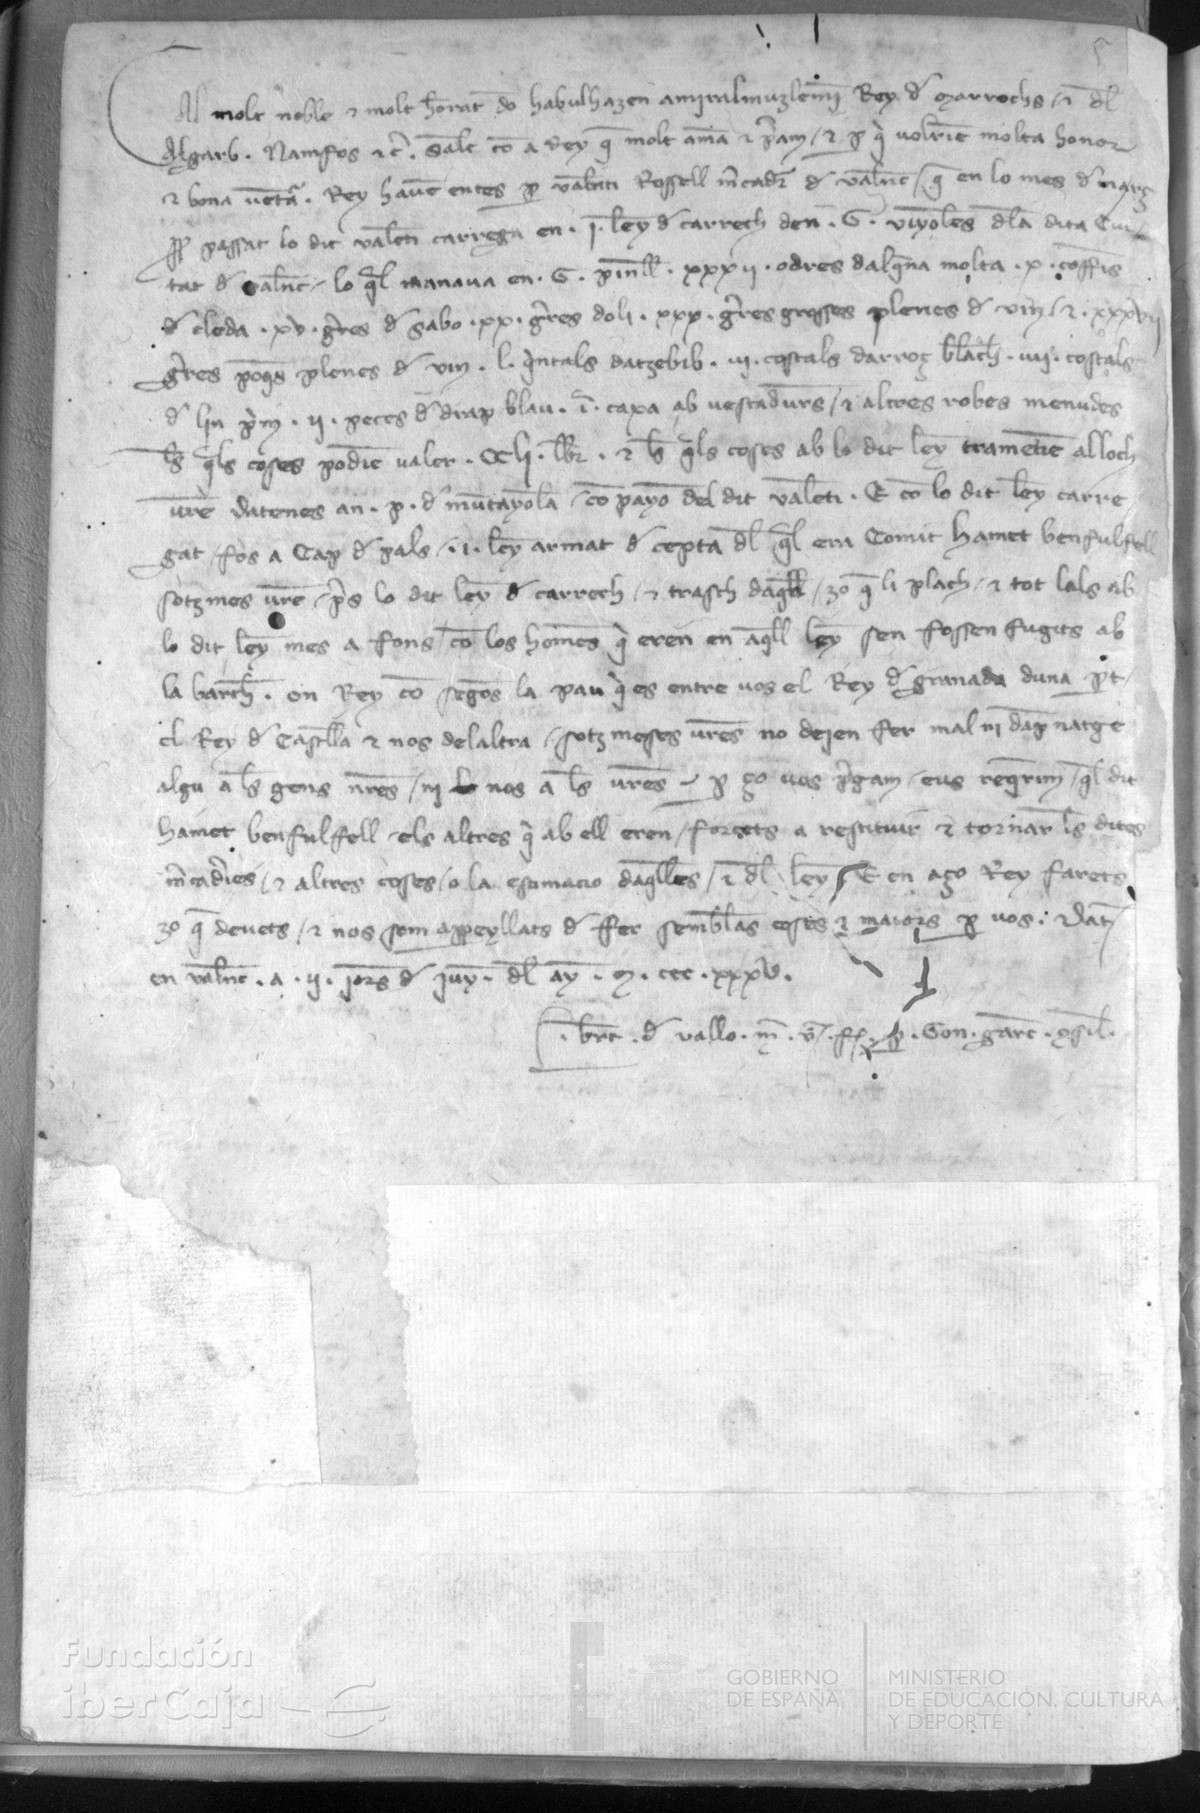 Al molt noble ⁊ molt honrat do habulhazen amiralmuzlemi Rey d marrochs / ⁊ dl
Algarb . Namfos ⁊c̄ . salt co a Rey q molt ama ⁊ pam / ⁊ p q volrie molta honor
⁊ bona uenta . Rey haue entes p valenti Rossell mcader d valenc / q en lo mes d març
pp passat lo dit valenti carrega en . j . leny d carrech den . G . vinyoles dla dita Ciu
tat d valenc / lo qal manaua en . G . pinell . xxxij . odres dalqna molta . x . coffins
d cleda . xv . gres d sabo . xx . gres doli . xxx . gres grosses plenes d vin / ⁊ . xxxvij
gres poqs plenes d vin . l . qntals datzebib . vi . costals darroç blach . iiij . costals
d lin pm . ij . peces d drap blau . i . caxa ab uestadurs / ⁊ altres robes menudes
ls qls coses podie valer . CCli . lbr . ⁊ ls qls coses ab lo dit leny trametie al loch
ure datenes an . p . d muntayola / co payo del dit valenti . E co lo dit leny carre
gat / fos a Cap d pals / . i . leny armat d cepta dl ql era Comit hamet benfulfell
sotzmes ure / ps lo dit leny d carrech / ⁊ trasch daqll / zo q li plach / ⁊ tot lals ab
lo dit leny mes a fons / co los homes q eren en aqll leny sen fossen fugits ab
la barch . on Rey co segons la pau q es entre uos el Rey d granada duna pt /
el Rey d Castlla ⁊ nos delaltra / sotzmeses ures no dejen fer mal ni dapnatge
algu a ls gens nres / ni nos a ls ures / p ço uos pgam / eus reqrim / ql dit
hamet benfulfell / els altres q ab ell eren / forcets a restituir ⁊ tornar ls dites
mcadies / ⁊ altres coses / o la estimacio daqlles / ⁊ dl leny / E en aço Rey farets
zo q deuets / ⁊ nos som appeyllats d fer semblas coses ⁊ maiors p uos . Dat
en valenc . a . ij . jors d juny . dl any . M . ccc . xxxv .
. brt . d vallo . m . r . ff . p . Gon . garc . 9sil .
Fundación
iberCaja
GOBIERNO
DE ESPAÑA
MINISTERIO
DE EDUCACIÓN, CULTURA
Y DEPORTE